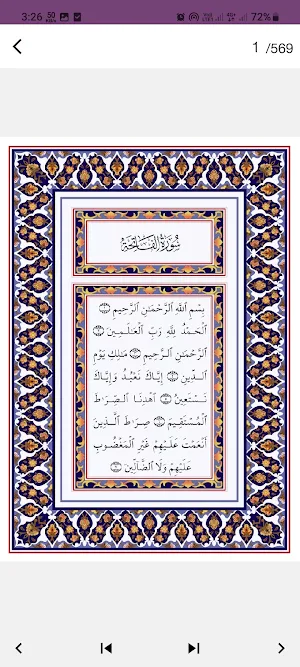 3:26 50 KB/s 72%
1 /569
سُورَةُ الْفَاتِحَةِ
بِسْمِ ٱللَّهِ ٱلرَّحْمَـٰنِ ٱلرَّحِيمِ ۝١
ٱلْحَمْدُ لِلَّهِ رَبِّ ٱلْعَـٰلَمِينَ ۝٢
ٱلرَّحْمَـٰنِ ٱلرَّحِيمِ ۝٣ مَـٰلِكِ يَوْمِ
ٱلدِّينِ ۝٤ إِيَّاكَ نَعْبُدُ وَإِيَّاكَ
نَسْتَعِينُ ۝٥ ٱهْدِنَا ٱلصِّرَٰطَ
ٱلْمُسْتَقِيمَ ۝٦ صِرَٰطَ ٱلَّذِينَ
أَنْعَمْتَ عَلَيْهِمْ غَيْرِ ٱلْمَغْضُوبِ
عَلَيْهِمْ وَلَا ٱلضَّآلِّينَ ۝٧